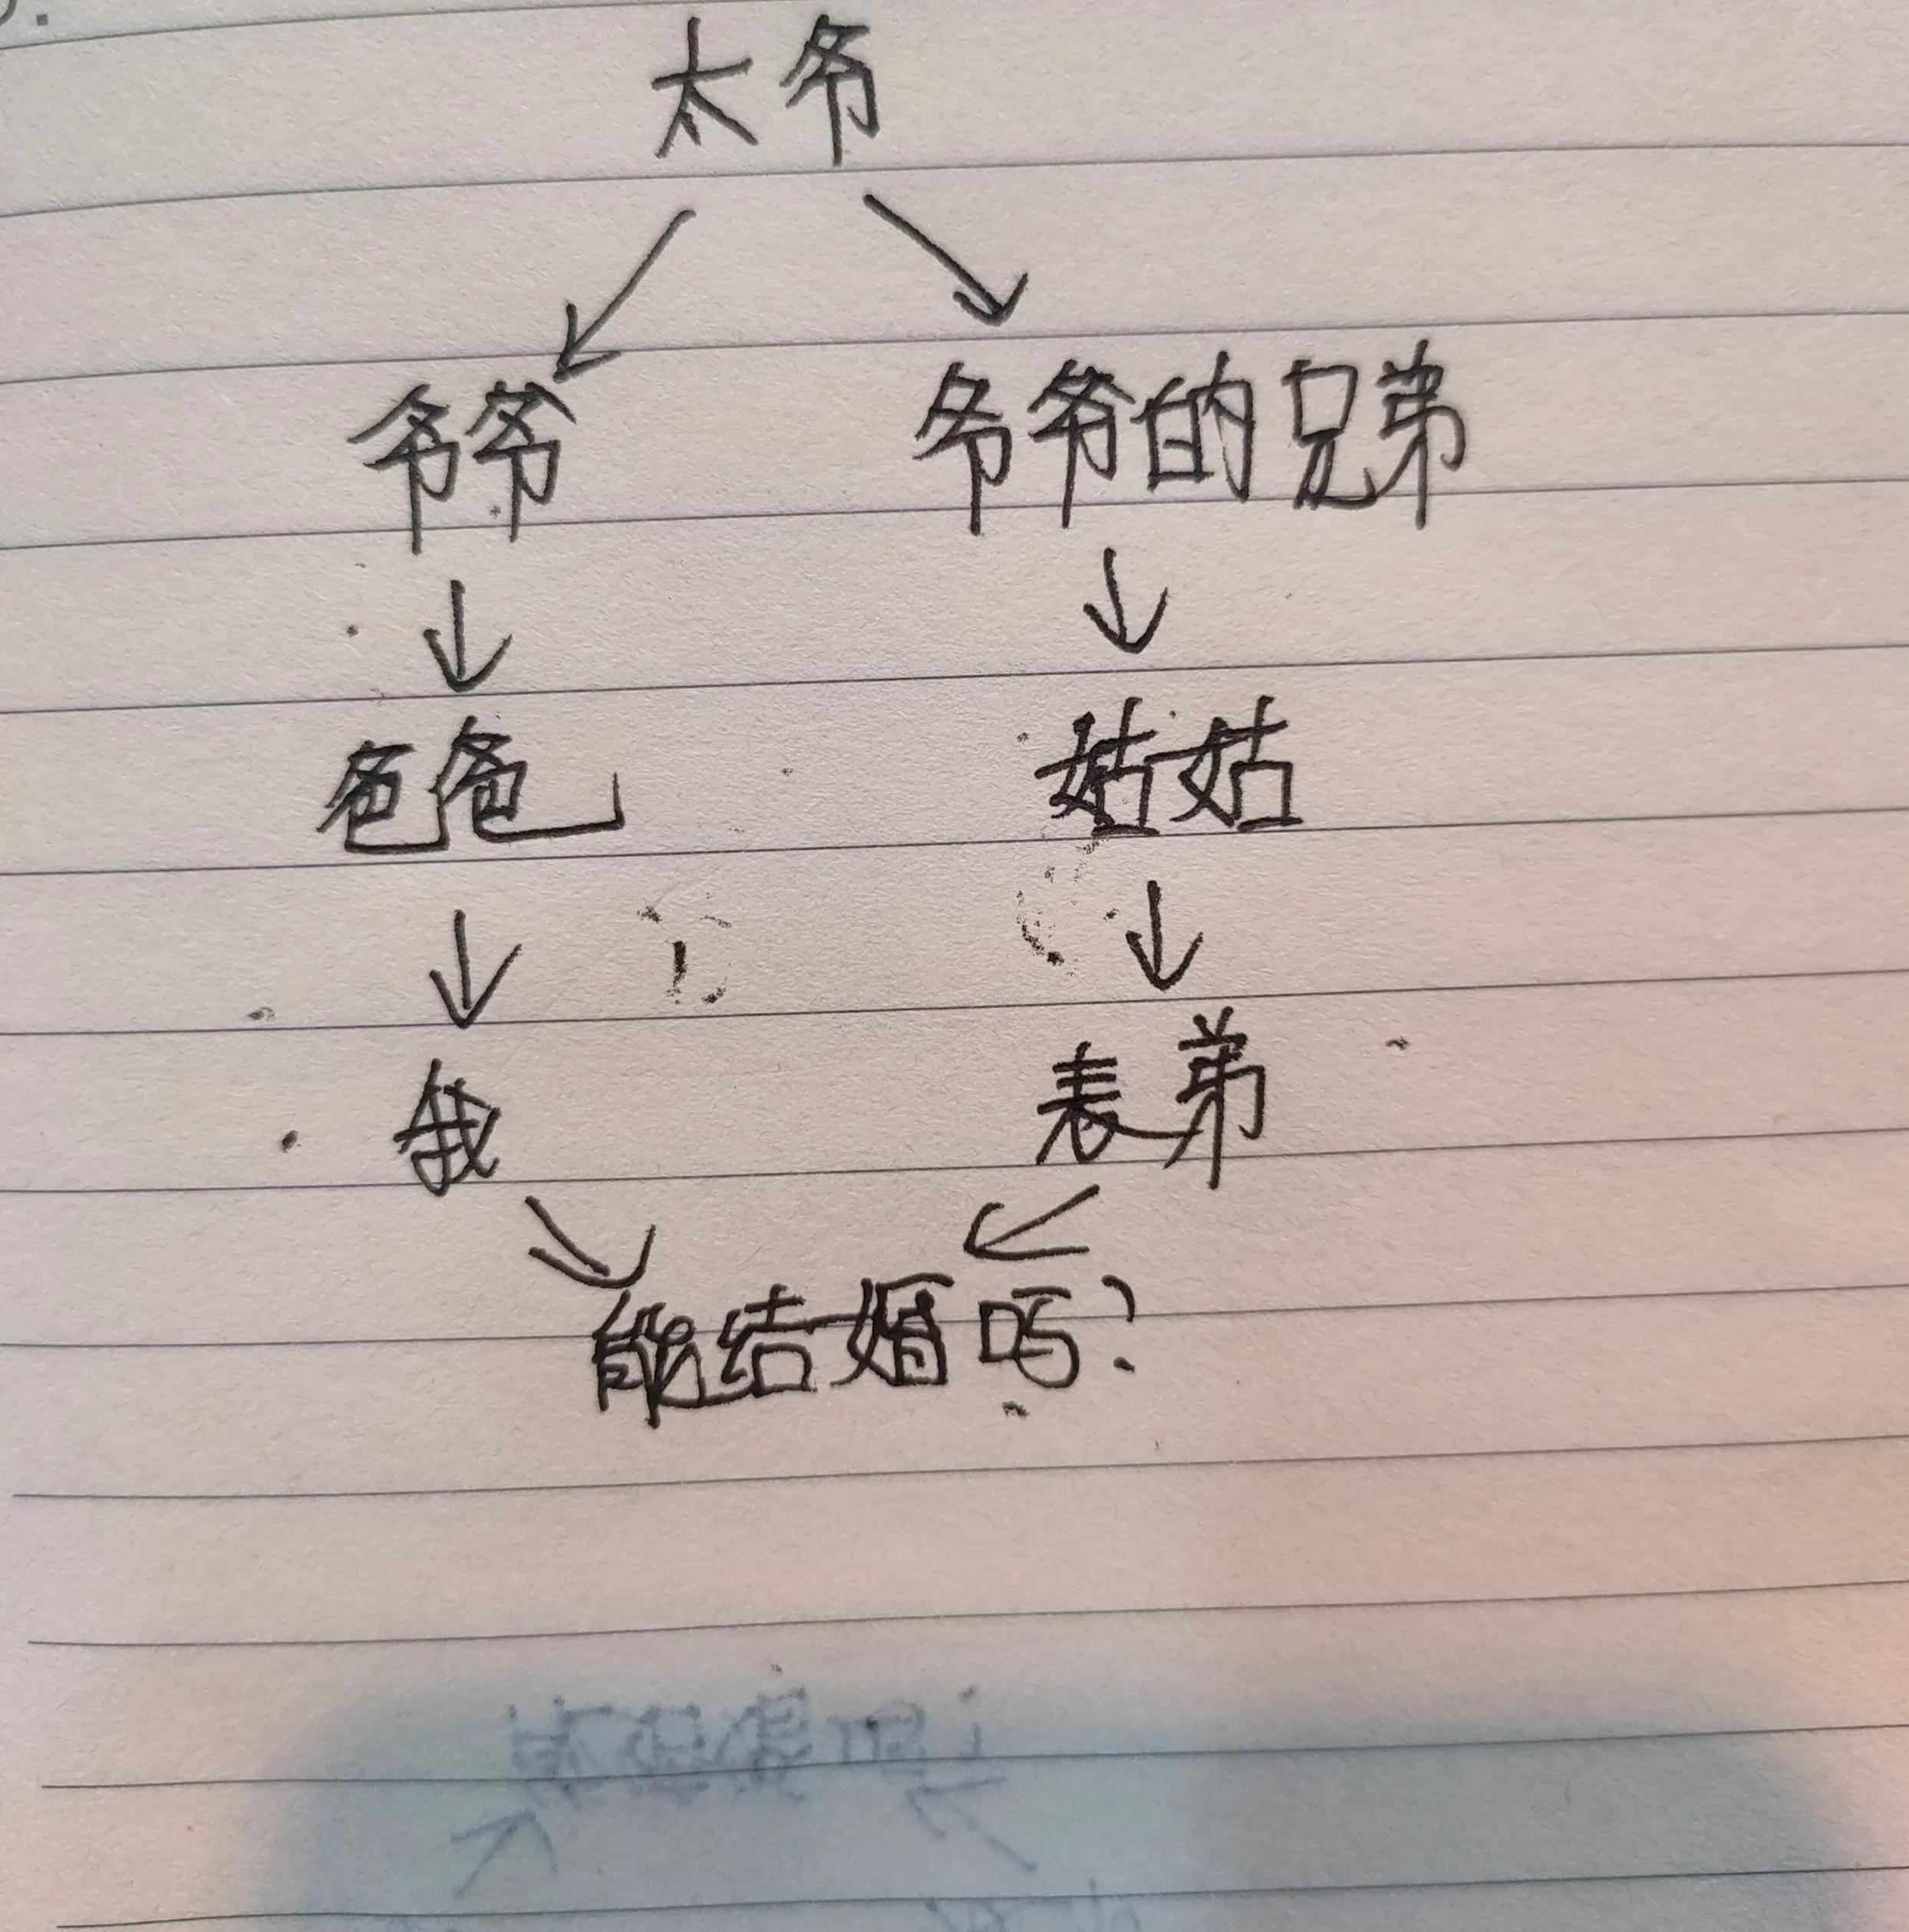 太爷
爷爷 爷爷的兄弟
爸爸 姑姑
我 表弟
能结婚吗?